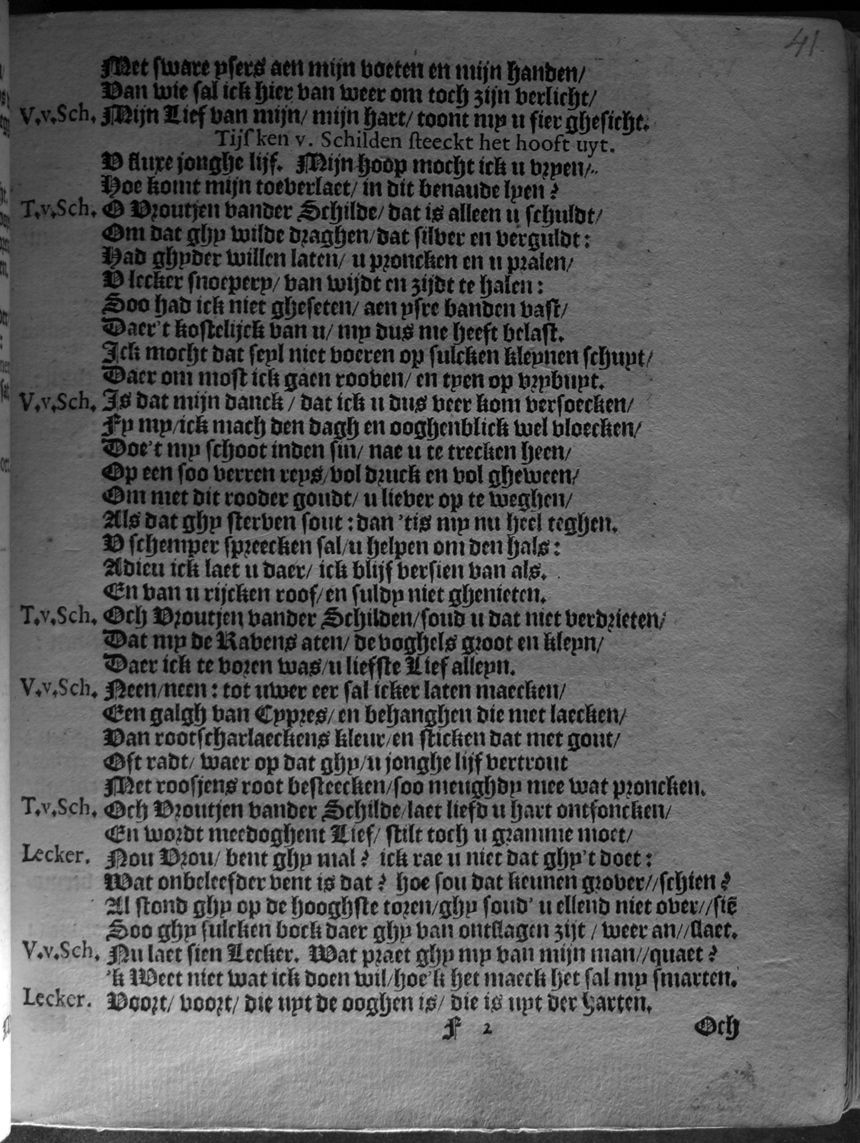 41
Met sware ysers aen mijn voeten en mijn handen/
Van wie sal ick hier van weer om toch zijn verlicht/
V.v.Sch. Mijn Lief van mijn/ mijn hart/ toont my u fier ghesicht.
Tijsken v. Schilden steeckt het hooft uyt.
V fluxe jonghe lijf. Mijn hoop mocht ick u vryen/
Hoe komt mijn toeverlaet/ in dit benaude lyen?
T.v.Sch. O Vroutjen vander Schilde/ dat is alleen u schuldt/
Om dat ghy wilde draghen/dat silver en verguldt:
Had ghyder willen laten/ u proncken en u pralen/
V lecker snoepery/ van wijdt en zijdt te halen:
Soo had ick niet gheseten/ aen ysre banden vast/
Daer't kostelijck van u/ my dus me heeft belast.
Ick mocht dat seyl niet voeren op sulcken kleynen schuyt/
Daer om most ick gaen rooven/ en tyen op vrybuyt.
V.v.Sch. Is dat mijn danck/ dat ick u dus veer kom versoecken/
Fy my/ick mach den dagh en ooghenblick wel vloecken/
Doe't my schoot inden sin/ nae u te trecken heen/
Op een soo verren reys/vol druck en vol gheween/
Om met dit rooder goudt/ u liever op te weghen/
Als dat ghy sterven sout: dan 'tis my nu heel teghen.
V schemper spreecken sal/u helpen om den hals:
Adieu ick laet u daer/ ick blijf versien van als.
En van u rijcken roof/en suldy niet ghenieten.
T.v.Sch. Och Vroutjen vander Schilden/soud u dat niet verdrieten/
Dat my de Ravens aten/ de voghels groot en kleyn/
Daer ick te voren was/u liefste Lief alleyn.
V.v.Sch. Neen/neen: tot uwer eer sal icker laten maecken/
Een galgh van Cypres/ en behanghen die met laecken/
Van rootscharlaeckens kleur/en sticken dat met gout/
Oft radt/ waer op dat ghy/u jonghe lijf vertrout
Met roosjens root besteecken/soo meughdy mee wat proncken.
T.v.Sch. Och Vroutjen vander Schilde/laet liefd u hart ontfoncken/
En wordt meedoghent Lief/ stilt toch u gramme moet/
Lecker. Nou Vrou/ bent ghy mal? ick rae u niet dat ghy't doet:
Wat onbeleefder vent is dat? hoe sou dat keunen grover//schien?
Al stond ghy op de hooghste toren/ghy soud' u ellend niet over//siē
Soo ghy sulcken bock daer ghy van ontslagen zijt/ weer an//slaet.
V.v.Sch. Nu laet sien Lecker. Wat praet ghy my van mijn man//quaet?
'k Weet niet wat ick doen wil/hoe'k het maeck het sal my smarten.
Lecker. Voort/ voort/ die uyt de ooghen is/ die is uyt der harten.
F 2 Och